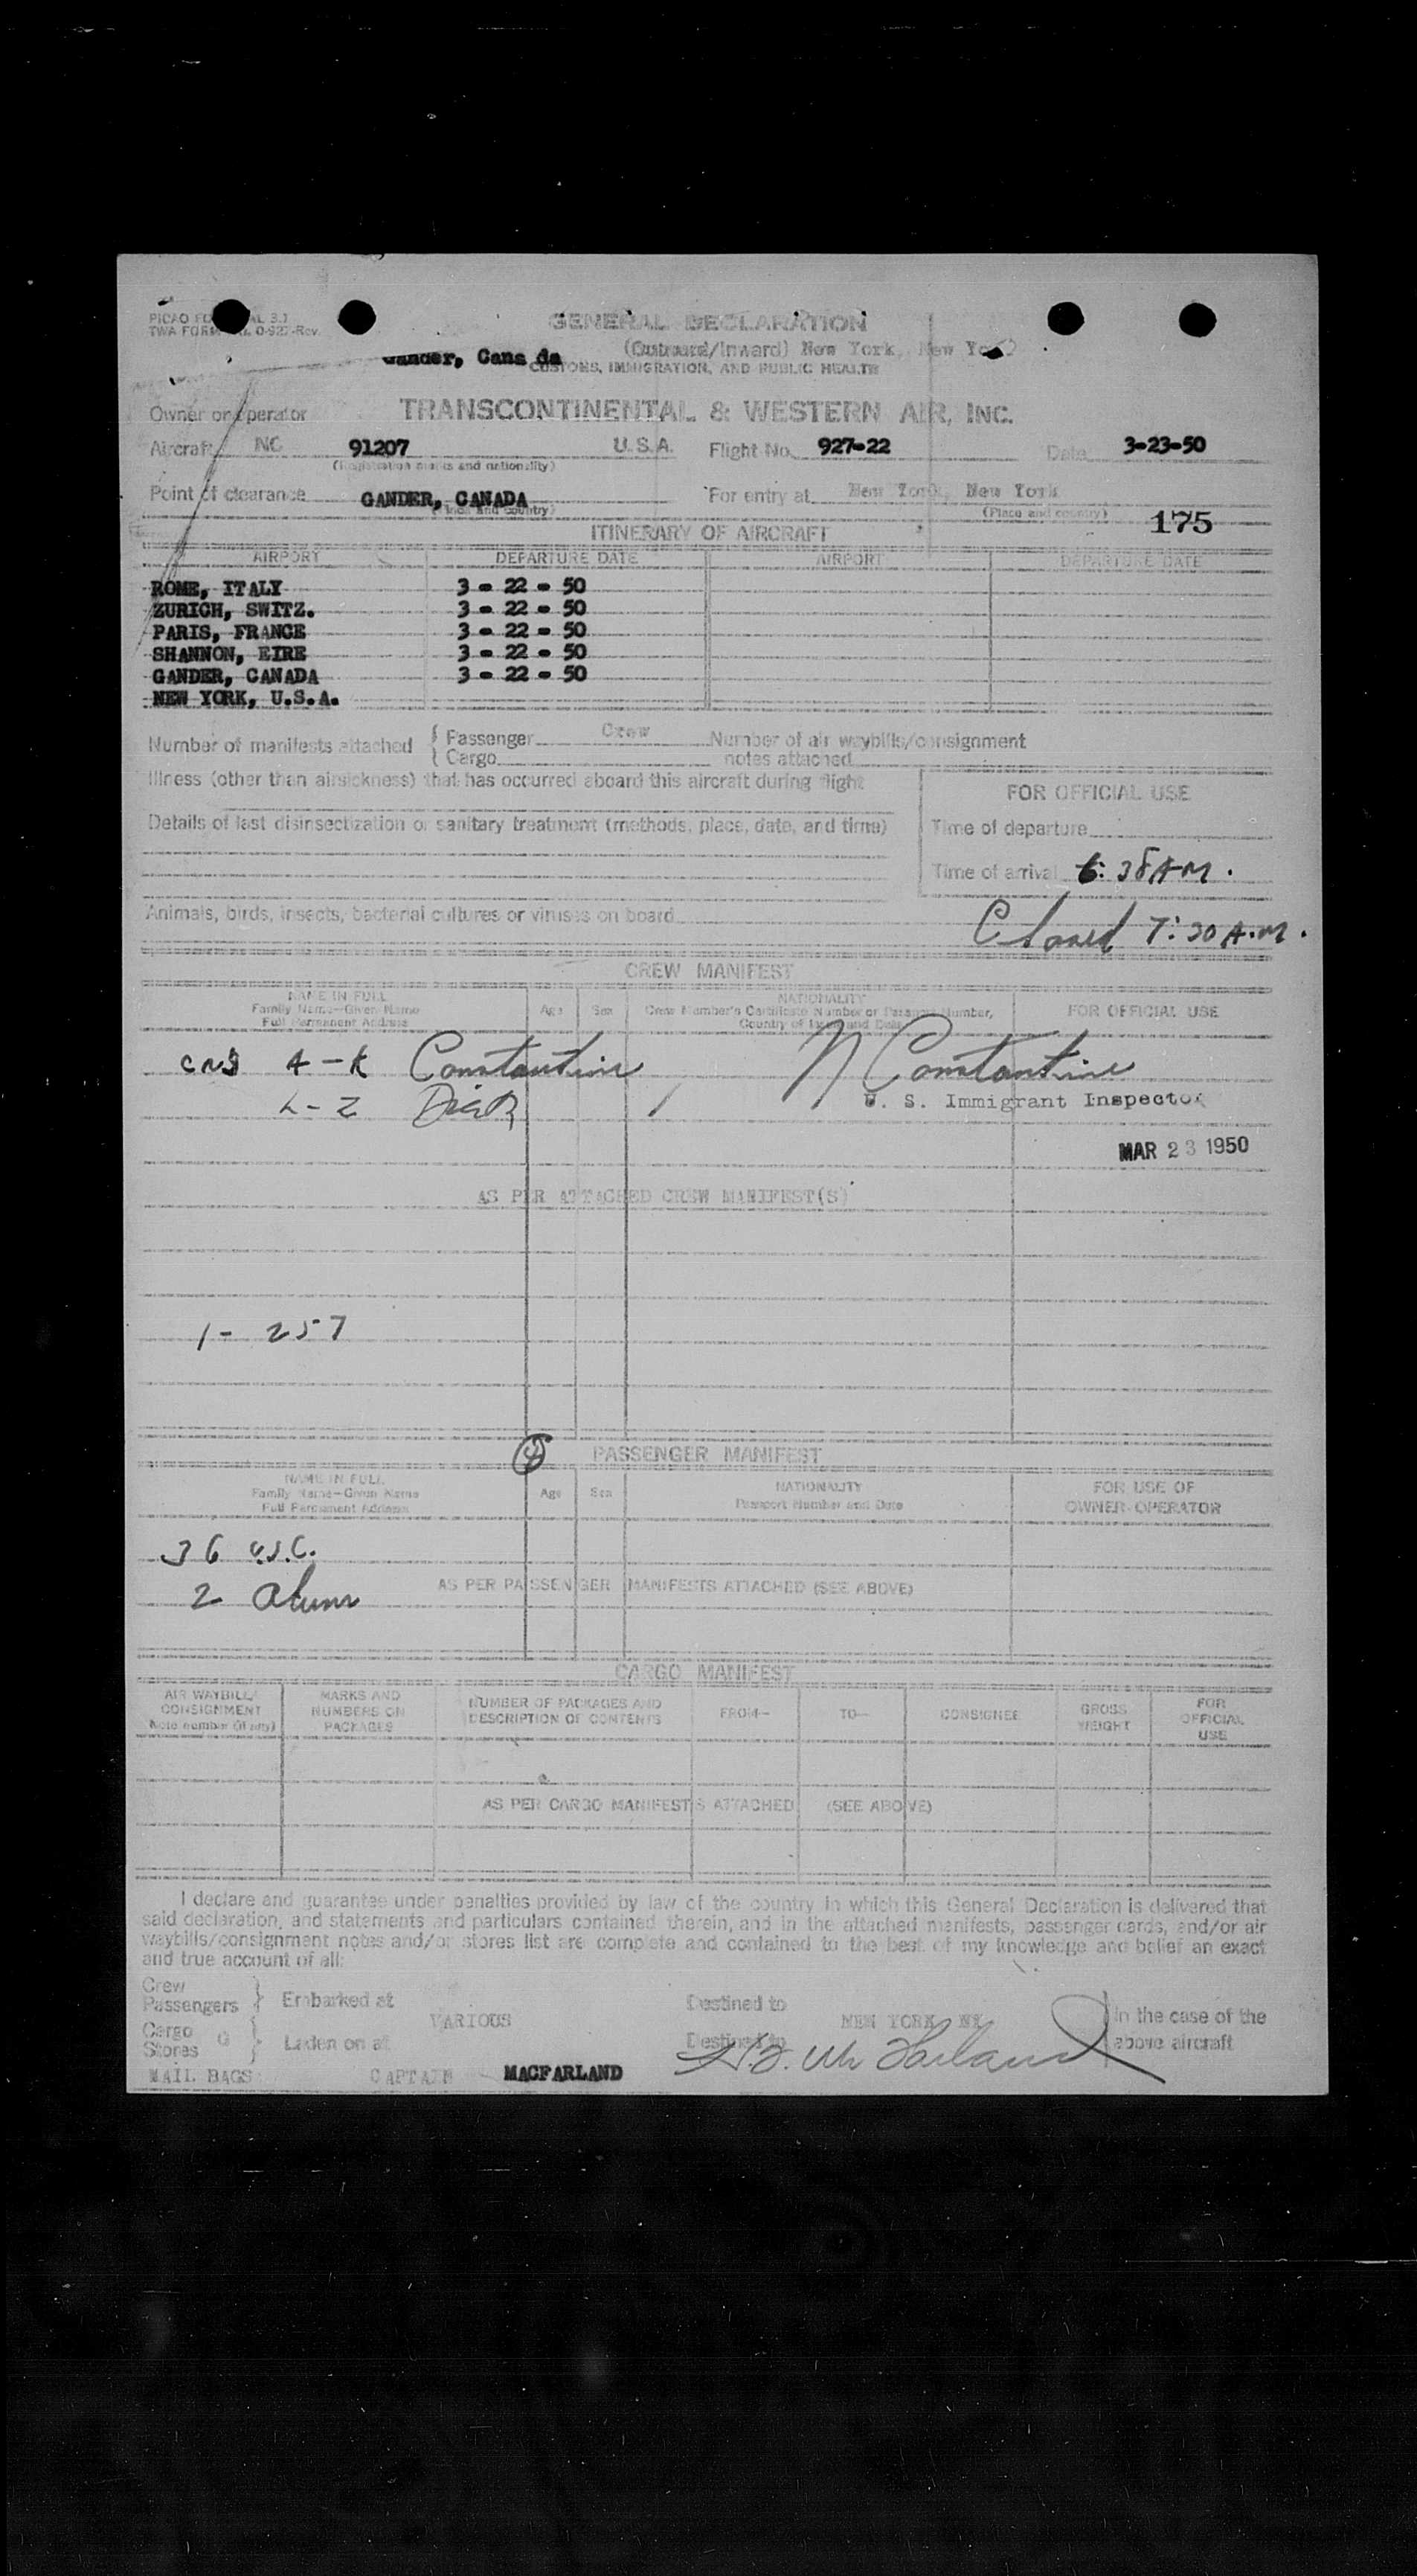 GENERAL DECLARATION
(Outward/Inward) New York, New York
Gander, Canada
CUSTOMS, IMMIGRATION, AND PUBLIC HEALTH
Owner or Operator TRANSCONTINENTAL & WESTERN AIR, INC.
Aircraft NC 91207 U.S.A. Flight No. 927-22 Date 3-23-50
(Registration marks and nationality)
Point of clearance GANDER, CANADA For entry at New York, New York
(Place and country) (Place and country) 175
ITINERARY OF AIRCRAFT
AIRPORT DEPARTURE DATE AIRPORT DEPARTURE DATE
ROME, ITALY 3 - 22 - 50
ZURICH, SWITZ. 3 - 22 - 50
PARIS, FRANCE 3 - 22 - 50
SHANNON, EIRE 3 - 22 - 50
GANDER, CANADA 3 - 22 - 50
NEW YORK, U.S.A.
Number of manifests attached { Passenger Crew Number of air waybills/consignment
{ Cargo notes attached
Illness (other than airsickness) that has occurred aboard this aircraft during flight
FOR OFFICIAL USE
Details of last disinsectization or sanitary treatment (methods, place, date, and time)
Time of departure
Time of arrival 6:38 AM.
Animals, birds, insects, bacterial cultures or viruses on board
Closed 7:30 A.M.
CREW MANIFEST
NAME IN FULL
Family Name—Given Name
Full Permanent Address
Age Sex
NATIONALITY
Crew Member's Certificate Number or Passport Number,
Country of Issue and Date
FOR OFFICIAL USE
A-K Constantine N Constantine
L-Z U. S. Immigrant Inspector
MAR 23 1950
AS PER ATTACHED CREW MANIFEST(S)
1- 257
PASSENGER MANIFEST
NAME IN FULL
Family Name—Given Name
Full Permanent Address
Age Sex
NATIONALITY
Passport Number and Date
FOR USE OF
OWNER-OPERATOR
36 U.S.C.
2 Aliens AS PER PASSENGER MANIFESTS ATTACHED (SEE ABOVE)
CARGO MANIFEST
AIR WAYBILL/
CONSIGNMENT
Note number (if any)
MARKS AND
NUMBERS ON
PACKAGES
NUMBER OF PACKAGES AND
DESCRIPTION OF CONTENTS
FROM—
TO—
CONSIGNEE
GROSS
WEIGHT
FOR
OFFICIAL
USE
AS PER CARGO MANIFESTS ATTACHED (SEE ABOVE)
I declare and guarantee under penalties provided by law of the country in which this General Declaration is delivered that
said declaration, and statements and particulars contained therein, and in the attached manifests, passenger cards, and/or air
waybills/consignment notes and/or stores list are complete and contained to the best of my knowledge and belief an exact
and true account of all:
Crew
Passengers } Embarked at VARIOUS Destined to NEW YORK NY In the case of the
Cargo
Stores } Laden on at Destined to above aircraft
MAIL BAGS CAPTAIN MACFARLAND